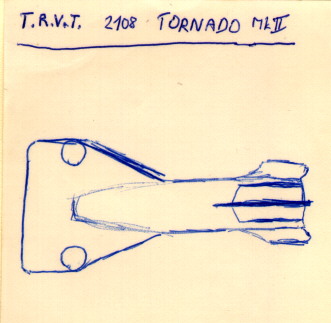 T.R.V.T. 2108 TORNADO MkII